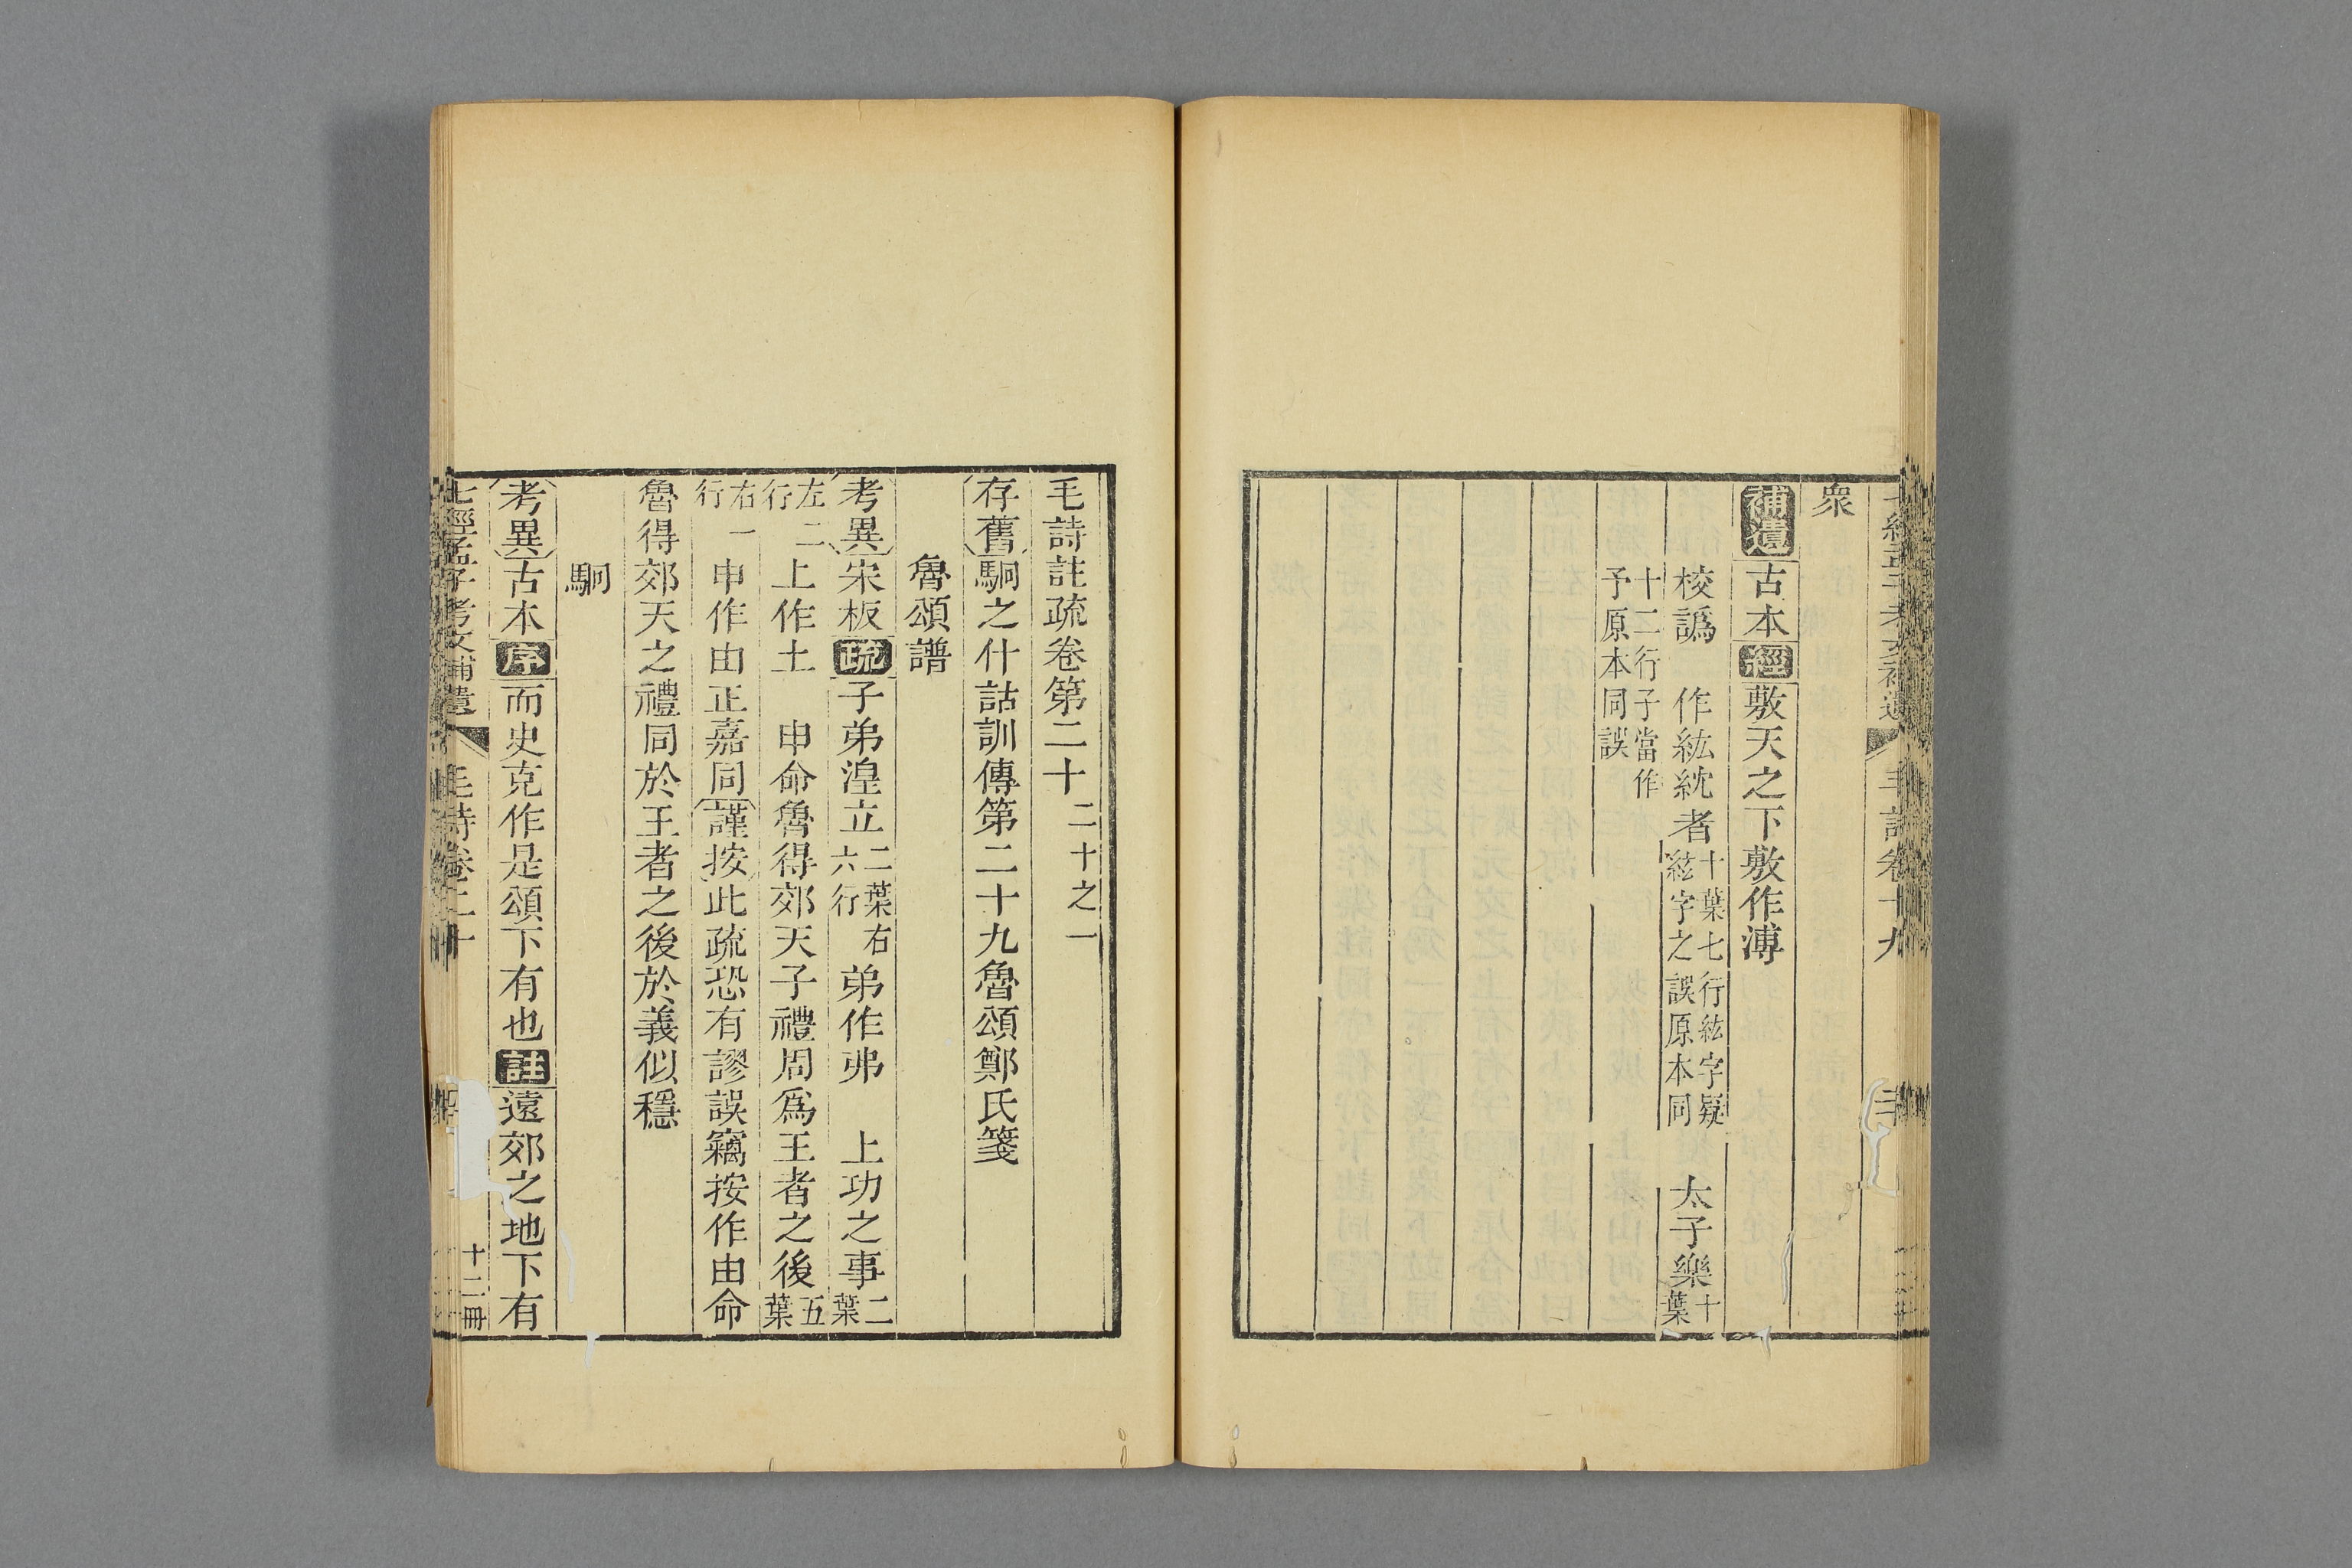 衆
補遺古本經敷天之下敷作溥
校譌 作紘紞者十葉七行紘字疑紘字之誤原本同 太子樂十葉
十二行子當作予原本同誤
毛詩註疏卷第二十 二十之一
存舊駉之什詁訓傳第二十九魯頌鄭氏箋
魯頌譜
考異宋板疏子弟湟立二葉右六行 弟作弗 上功之事二葉
左二行上作土 申命魯得郊天子禮周爲王者之後五葉
右一行 申作由正嘉同謹按此疏恐有謬誤竊按作由命
魯得郊天之禮同於王者之後於義似穩
駉
考異古本序而史克作是頌下有也註遠郊之地下有
七經孟子考文補遺 毛詩卷二十 十二冊